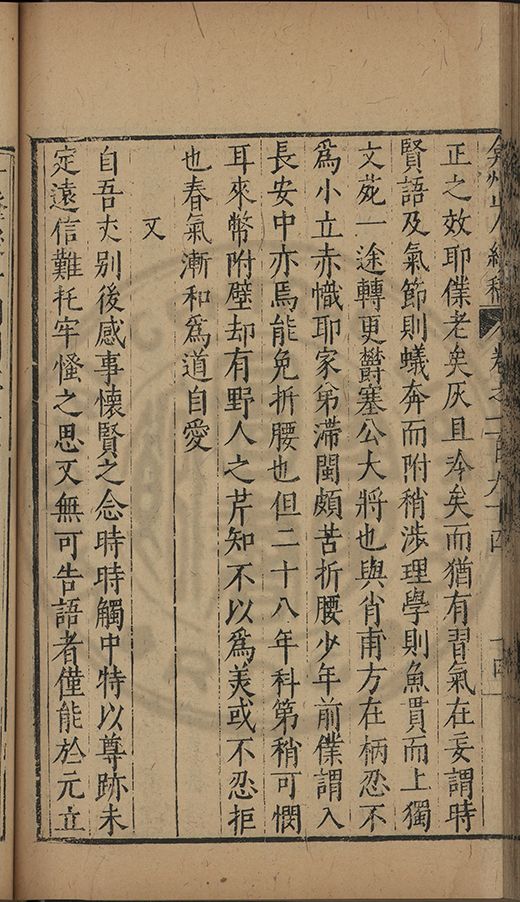 弇州山人續稿 卷之一百九十四 十四
正之效耶僕老矣灰且冷矣而猶有習氣在妄謂時
賢語及氣節則蟻奔而附稍涉理學則魚貫而上獨
文苑一途轉更欝塞公大將也與肖甫方在柄忍不
爲小立赤幟耶家弟滯閩頗苦折腰少年前僕謂入
長安中亦焉能免折腰也但二十八年科第稍可憫
耳來幣附壁却有野人之芹知不以爲美或不忍拒
也春氣漸和爲道自愛
又
自吾丈别後感事懷賢之念時時觸中特以尊跡未
定遠信難托牢慅之思又無可告語者僅能於元立